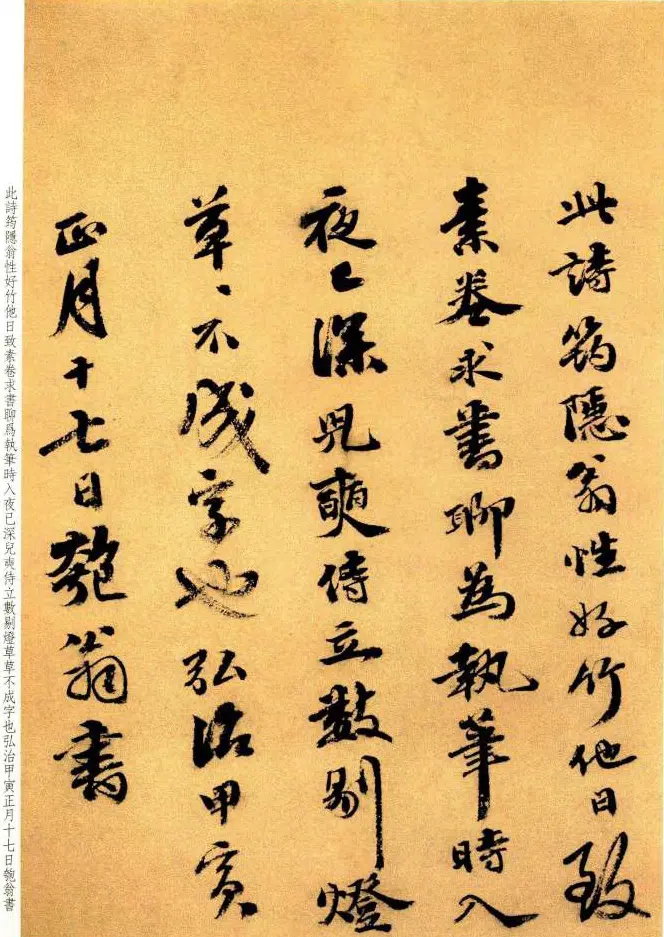 此詩筠隱翁性好竹他日致
素卷求書聊為執筆時入
夜已深兒奭侍立數剔燈
草草不成字也弘治甲寅
正月十七日匏翁書
此詩筠隱翁性好竹他日致素卷求書聊爲執筆時入夜已深兒奭侍立數剔燈草草不成字也弘治甲寅正月十七日匏翁書